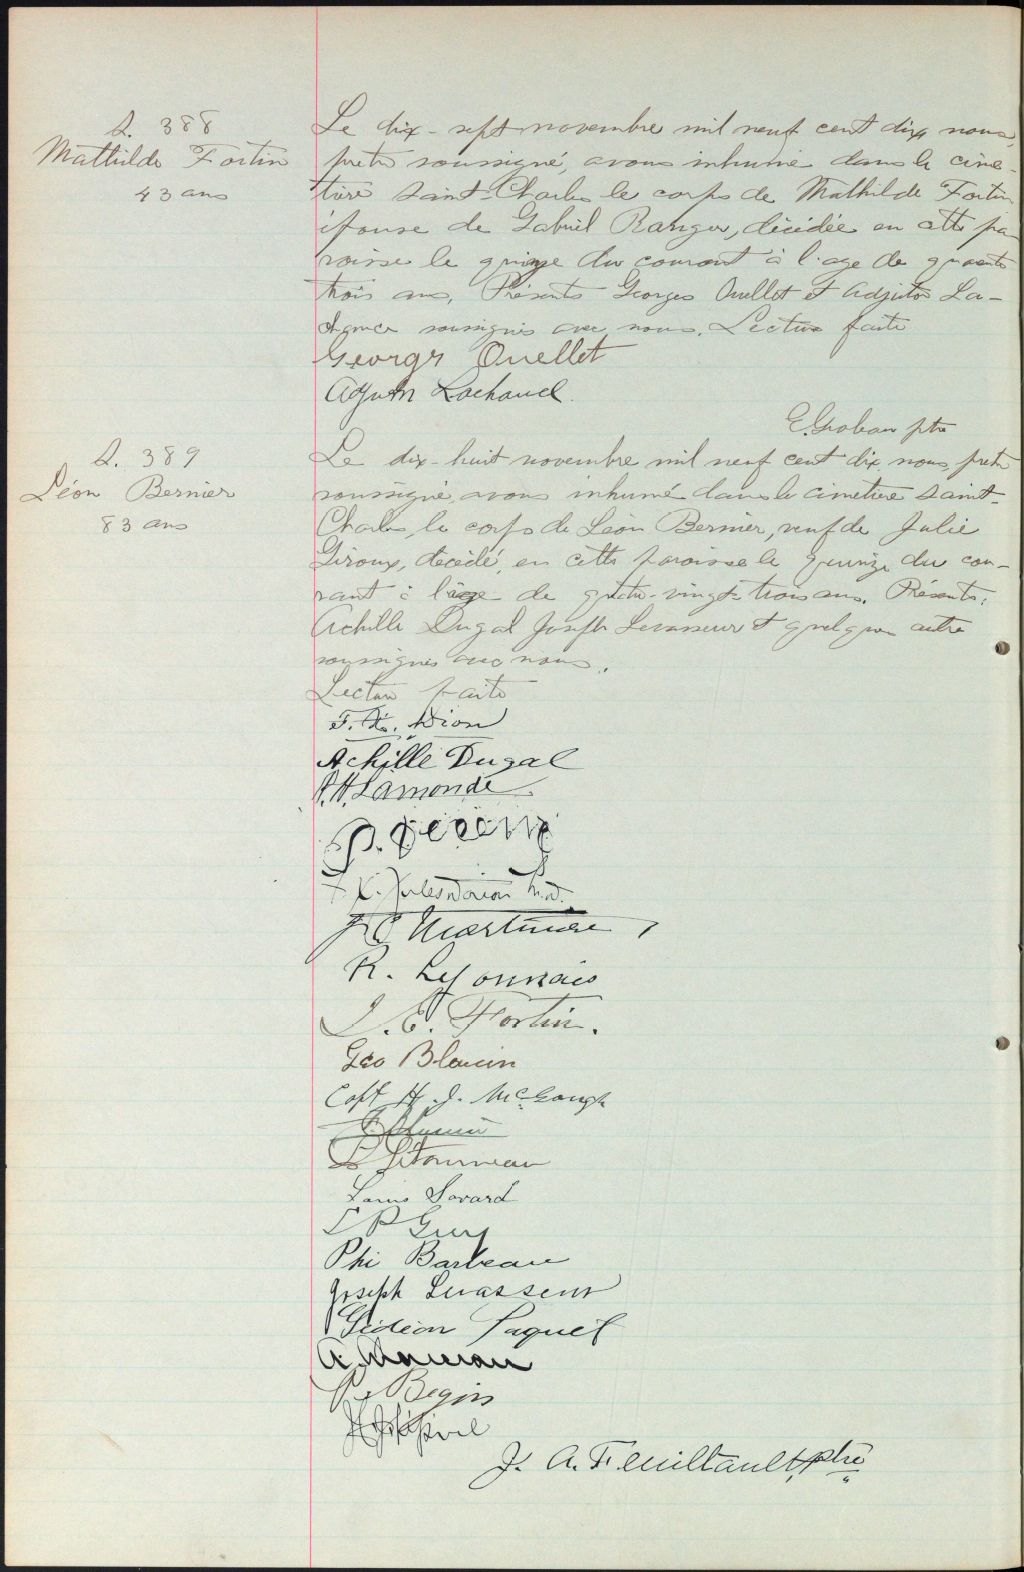 S. 388
Mathilde Fortin
43 ans
Le dix-sept novembre mil neuf cent dix nous,
pretre soussigné, avons inhumé dans le cime-
tière Saint-Charles le corps de Mathilde Fortin
épouse de Gabriel Ranger, décédée en cette pa
roisse le quinze du courant à l'age de quarante
trois ans. Présents Georges Ouellet et Adjutor La-
chance soussignés avec nous. Lecture faite
George Ouellet
Lachance
ptre
S. 389
Léon Bernier
83 ans
Le dix-huit novembre mil neuf cent dix, nous, pretre
soussigné, avons inhumé dans le cimetière Saint-
Charles le corps de Léon Bernier, veuf de Julie
Giroux, décédé, en cette paroisse le quinze du cou-
rant à l'âge de quatre-vingt-trois ans. Présents:
Achille Dugal Joseph Levasseur et quelques autres
soussignés avec nous.
Lecture faite
Dion
Achille Dugal
Lamonde
F. X. Jules Dorion M.D.
R. Lyonnais
J. E. Fortin.
Geo Blouin
Capt H. J. McGough
Letourneau
Louis Savard
Phi Barbeau
Joseph Levasseur
Gédéon Paquet
P. Begin
J. A. Feuiltault, ptre